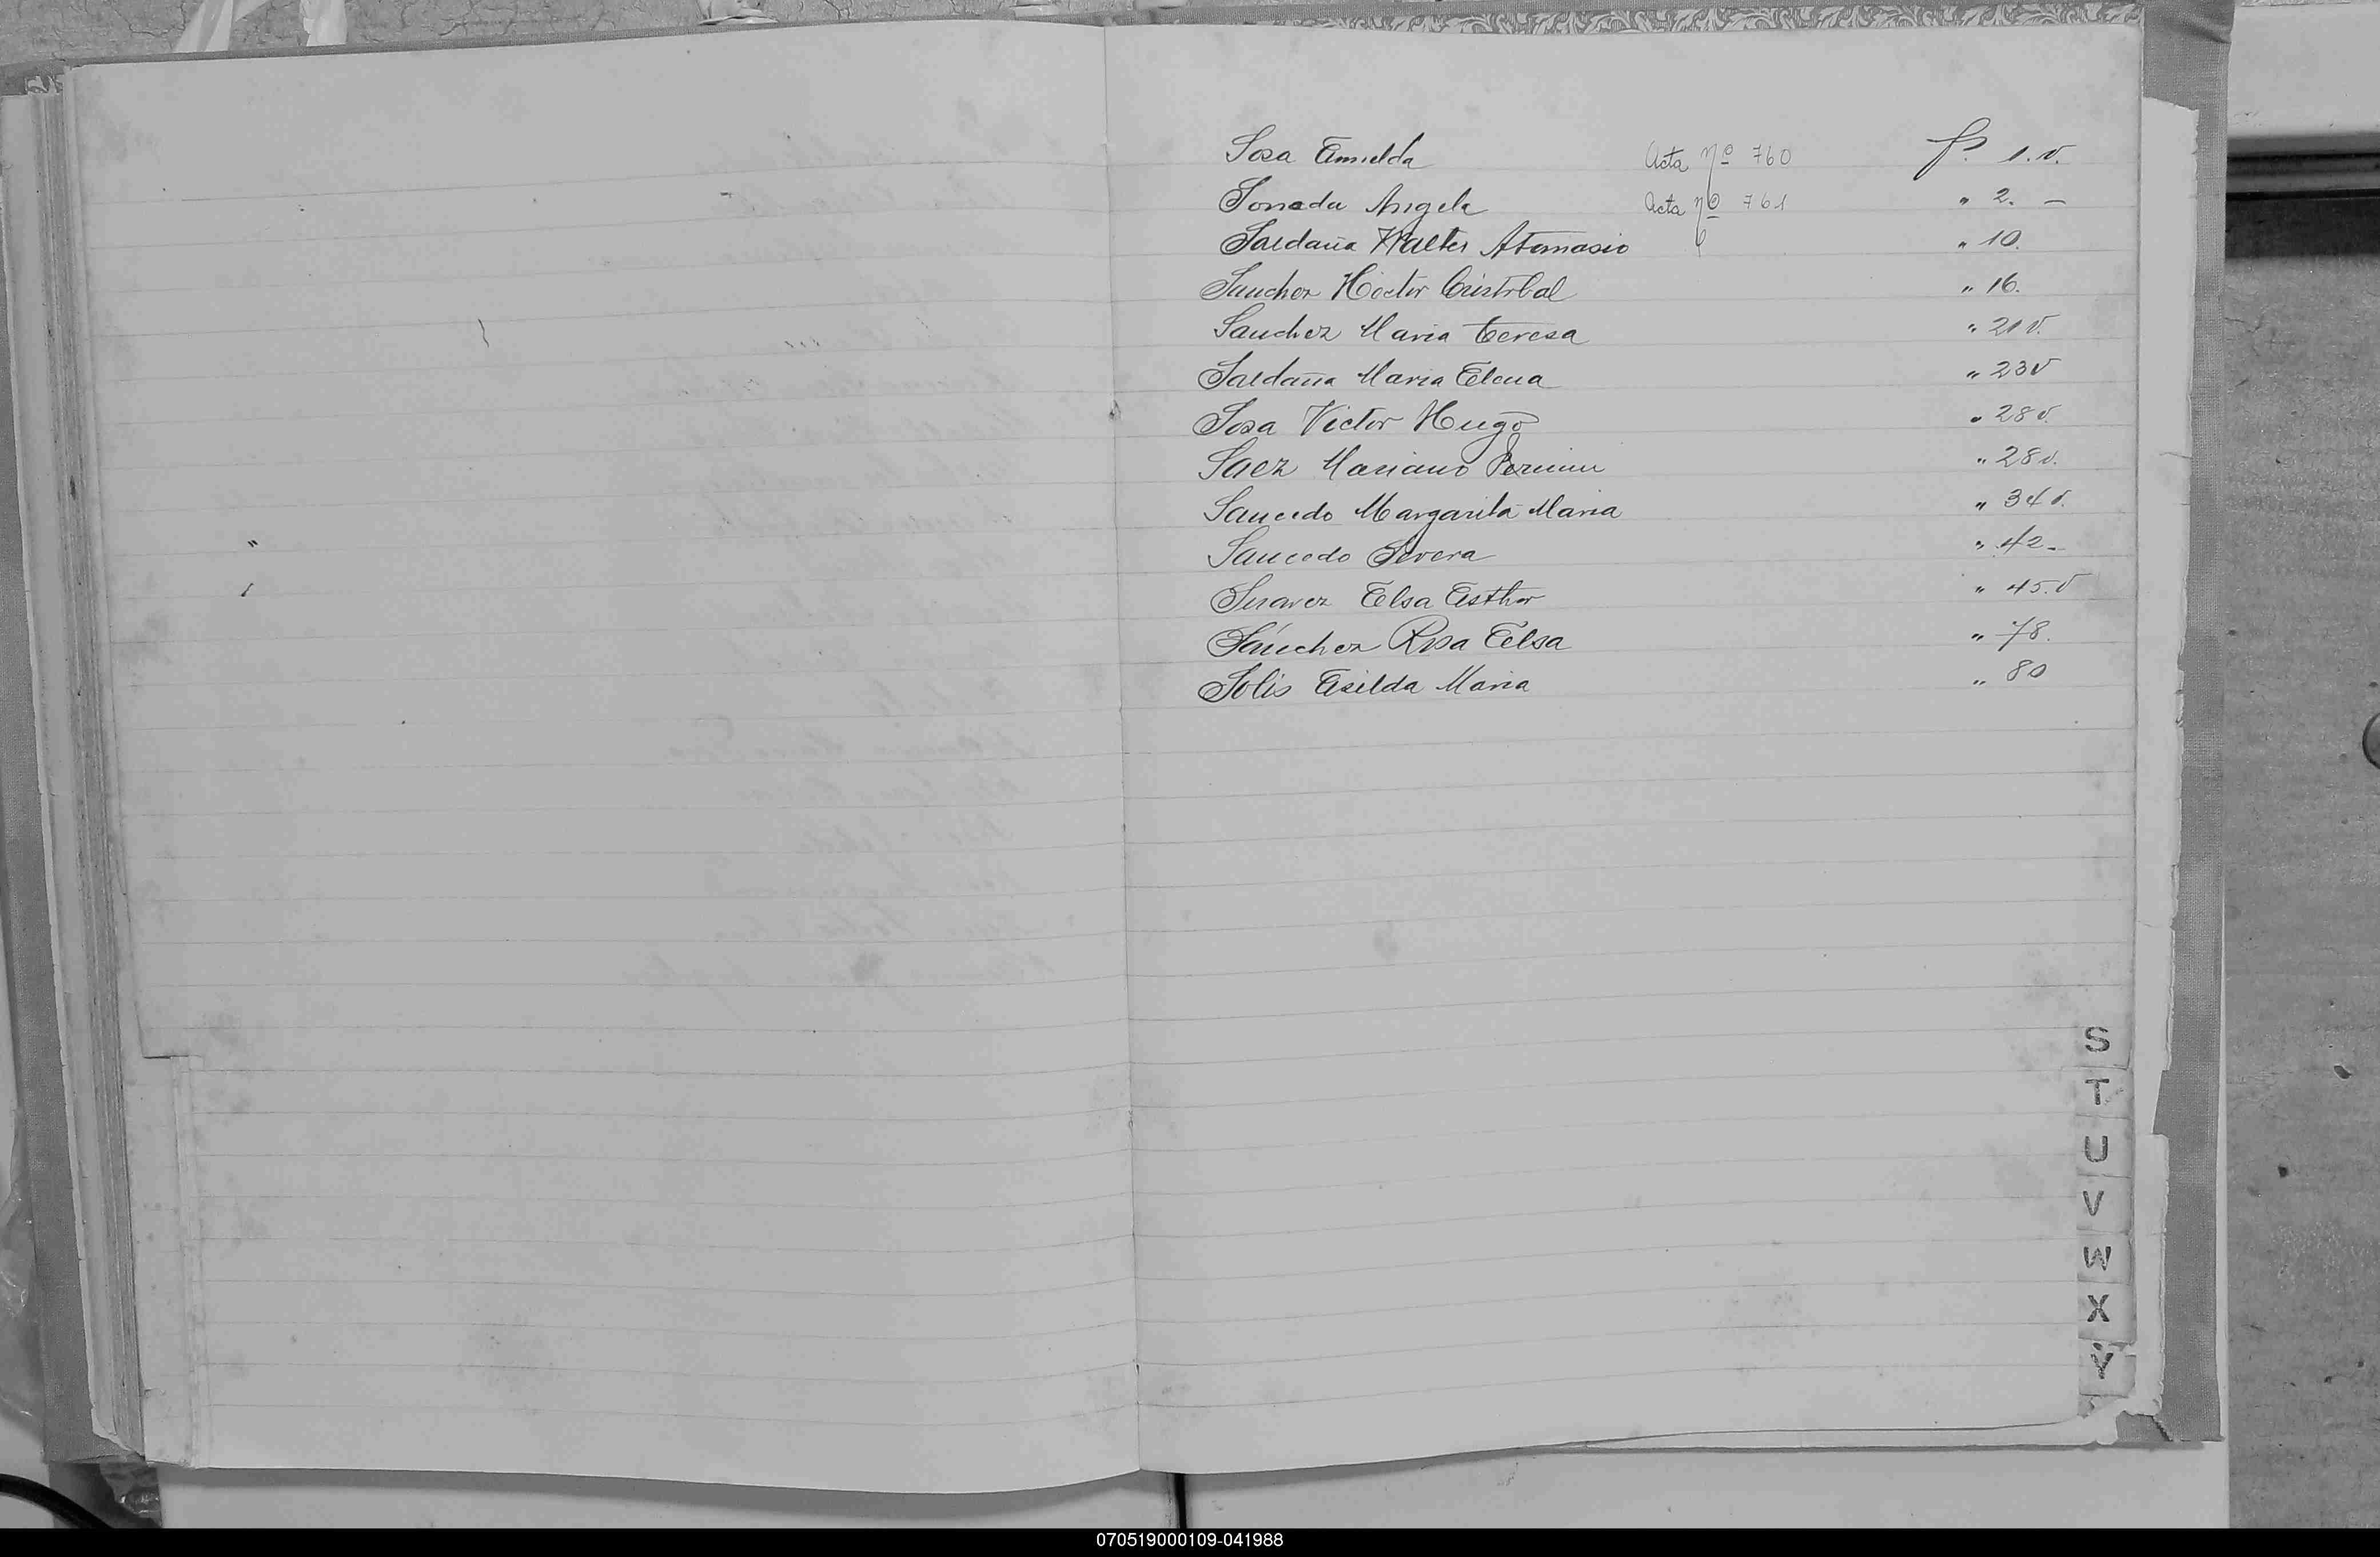 Sosa Amelda Acta Nº 760 fs. 1.v.
Angela Acta Nº 761 " 2. –
Saldaña Walter Atanasio " 10.
Sanchez Hector Cristobal " 16.
Sanchez Maria Teresa " 21 v.
Saldaña Maria Elena " 23 v
Sosa Victor Hugo " 28 v.
Saez Mariano Fermin " 28 v.
Saucedo Margarita Maria " 34 v.
Saucedo Severa " 42 -
Suarez Elsa Esther " 45. v
Sánchez Rosa Elsa " 78.
Solis Maria " 80
S
T
U
V
W
X
Y
070519000109-041988